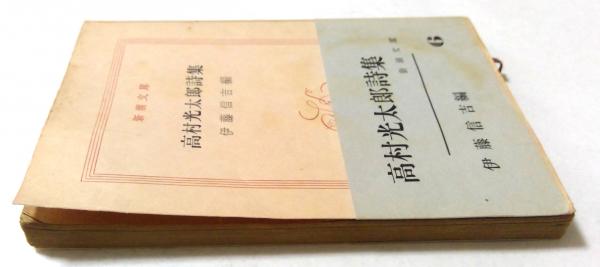 新潮文庫
高村光太郎詩集
伊藤信吉編
高村光太郎詩集
新潮文庫
6
伊藤信吉編